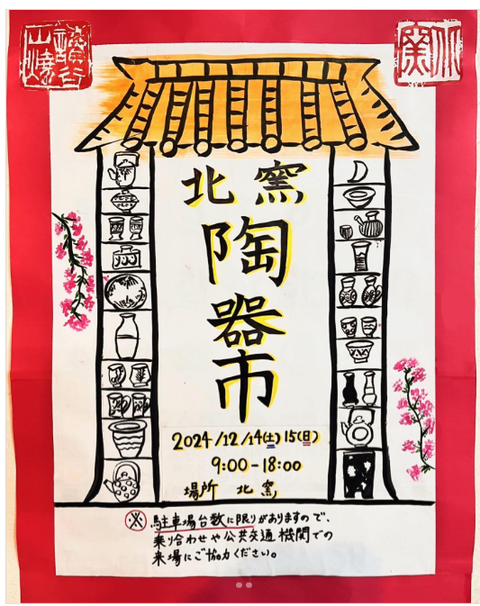 読谷
山焼
北窯
北窯
陶
器
市
2024/12/14(土)15(日)
9:00-18:00
場所 北窯
※駐車場台数に限りがありますので、
乗り合わせや公共交通機関での
来場にご協力ください。